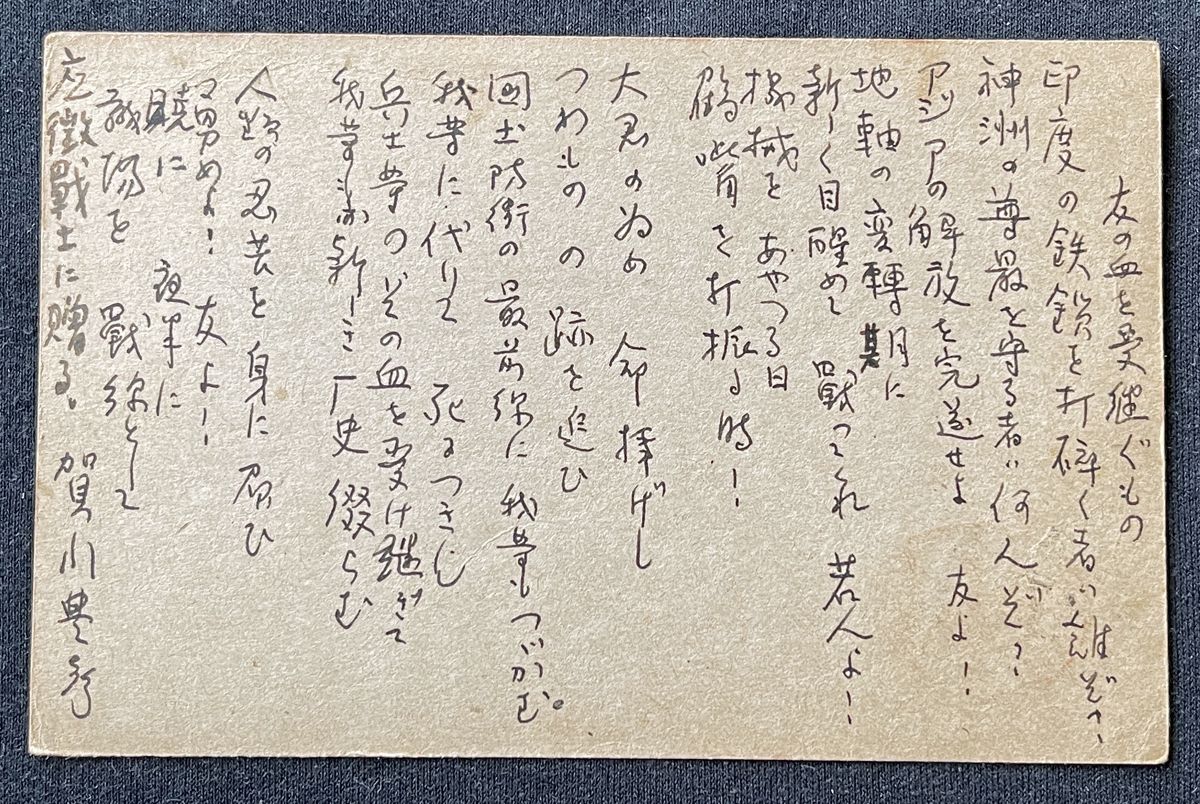 友の血を受継ぐもの
印度の鉄鎖を打砕く者は誰ぞ?
神洲の尊厳を守る者は何んぞ?
アジアの解放を完遂せよ 友よ!
地軸の変轉 其月に
新しく目醒めて 戰つてくれ 若人よ!
機械を あやつる日
鶴嘴を打振る時!
大君の為め 命捧げし
つわもの の 跡を追ひ
國土防衛の最前線に 我等もつゞかむ。
我等に代りて 死につきし
兵士等のいその血を受け継ぎて
我等亦新しき厂史 綴らむ
人類の忍苦を身に負ひ
努めよ! 友よ!
暁に 夜半に
職場を 戰線として
応徴戰士に贈る。 賀川豊彦